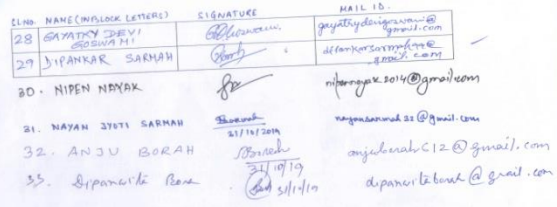 SL NO. NAME (IN BLOCK LETTERS) SIGNATURE MAIL ID.
28 GAYATRY DEVI GOSWAMI gayatrydevigoswami@gmail.com
29 DIPANKAR SARMAH gmail.com
30. NIPEN NAYAK nipennayak2014@gmail.com
31. NAYAN JYOTI SARMAH 31/10/2019 nayansarmah31@gmail.com
32. ANJU BORAH Borah 31/10/19 anjuborah612@gmail.com
33. Dipanwita Bora 31/10/19 dipanwitaborah@gmail.com